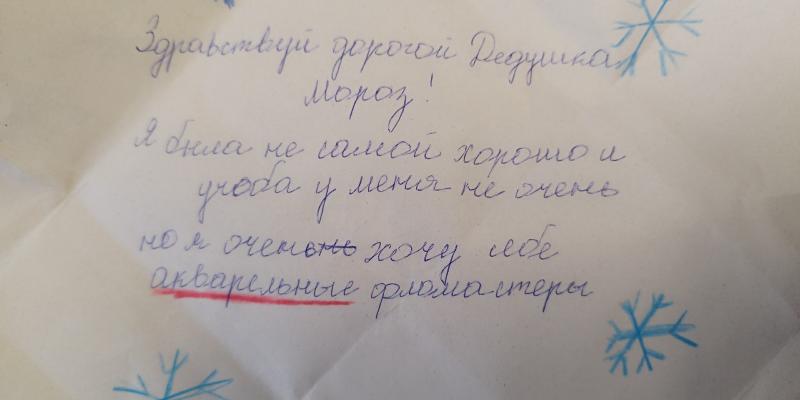 Здравствуй дорогой Дедушка
Мороз!
Я была не самой хорошо и
учоба у меня не очень
но я очень хочу себе
акварельные фломастеры